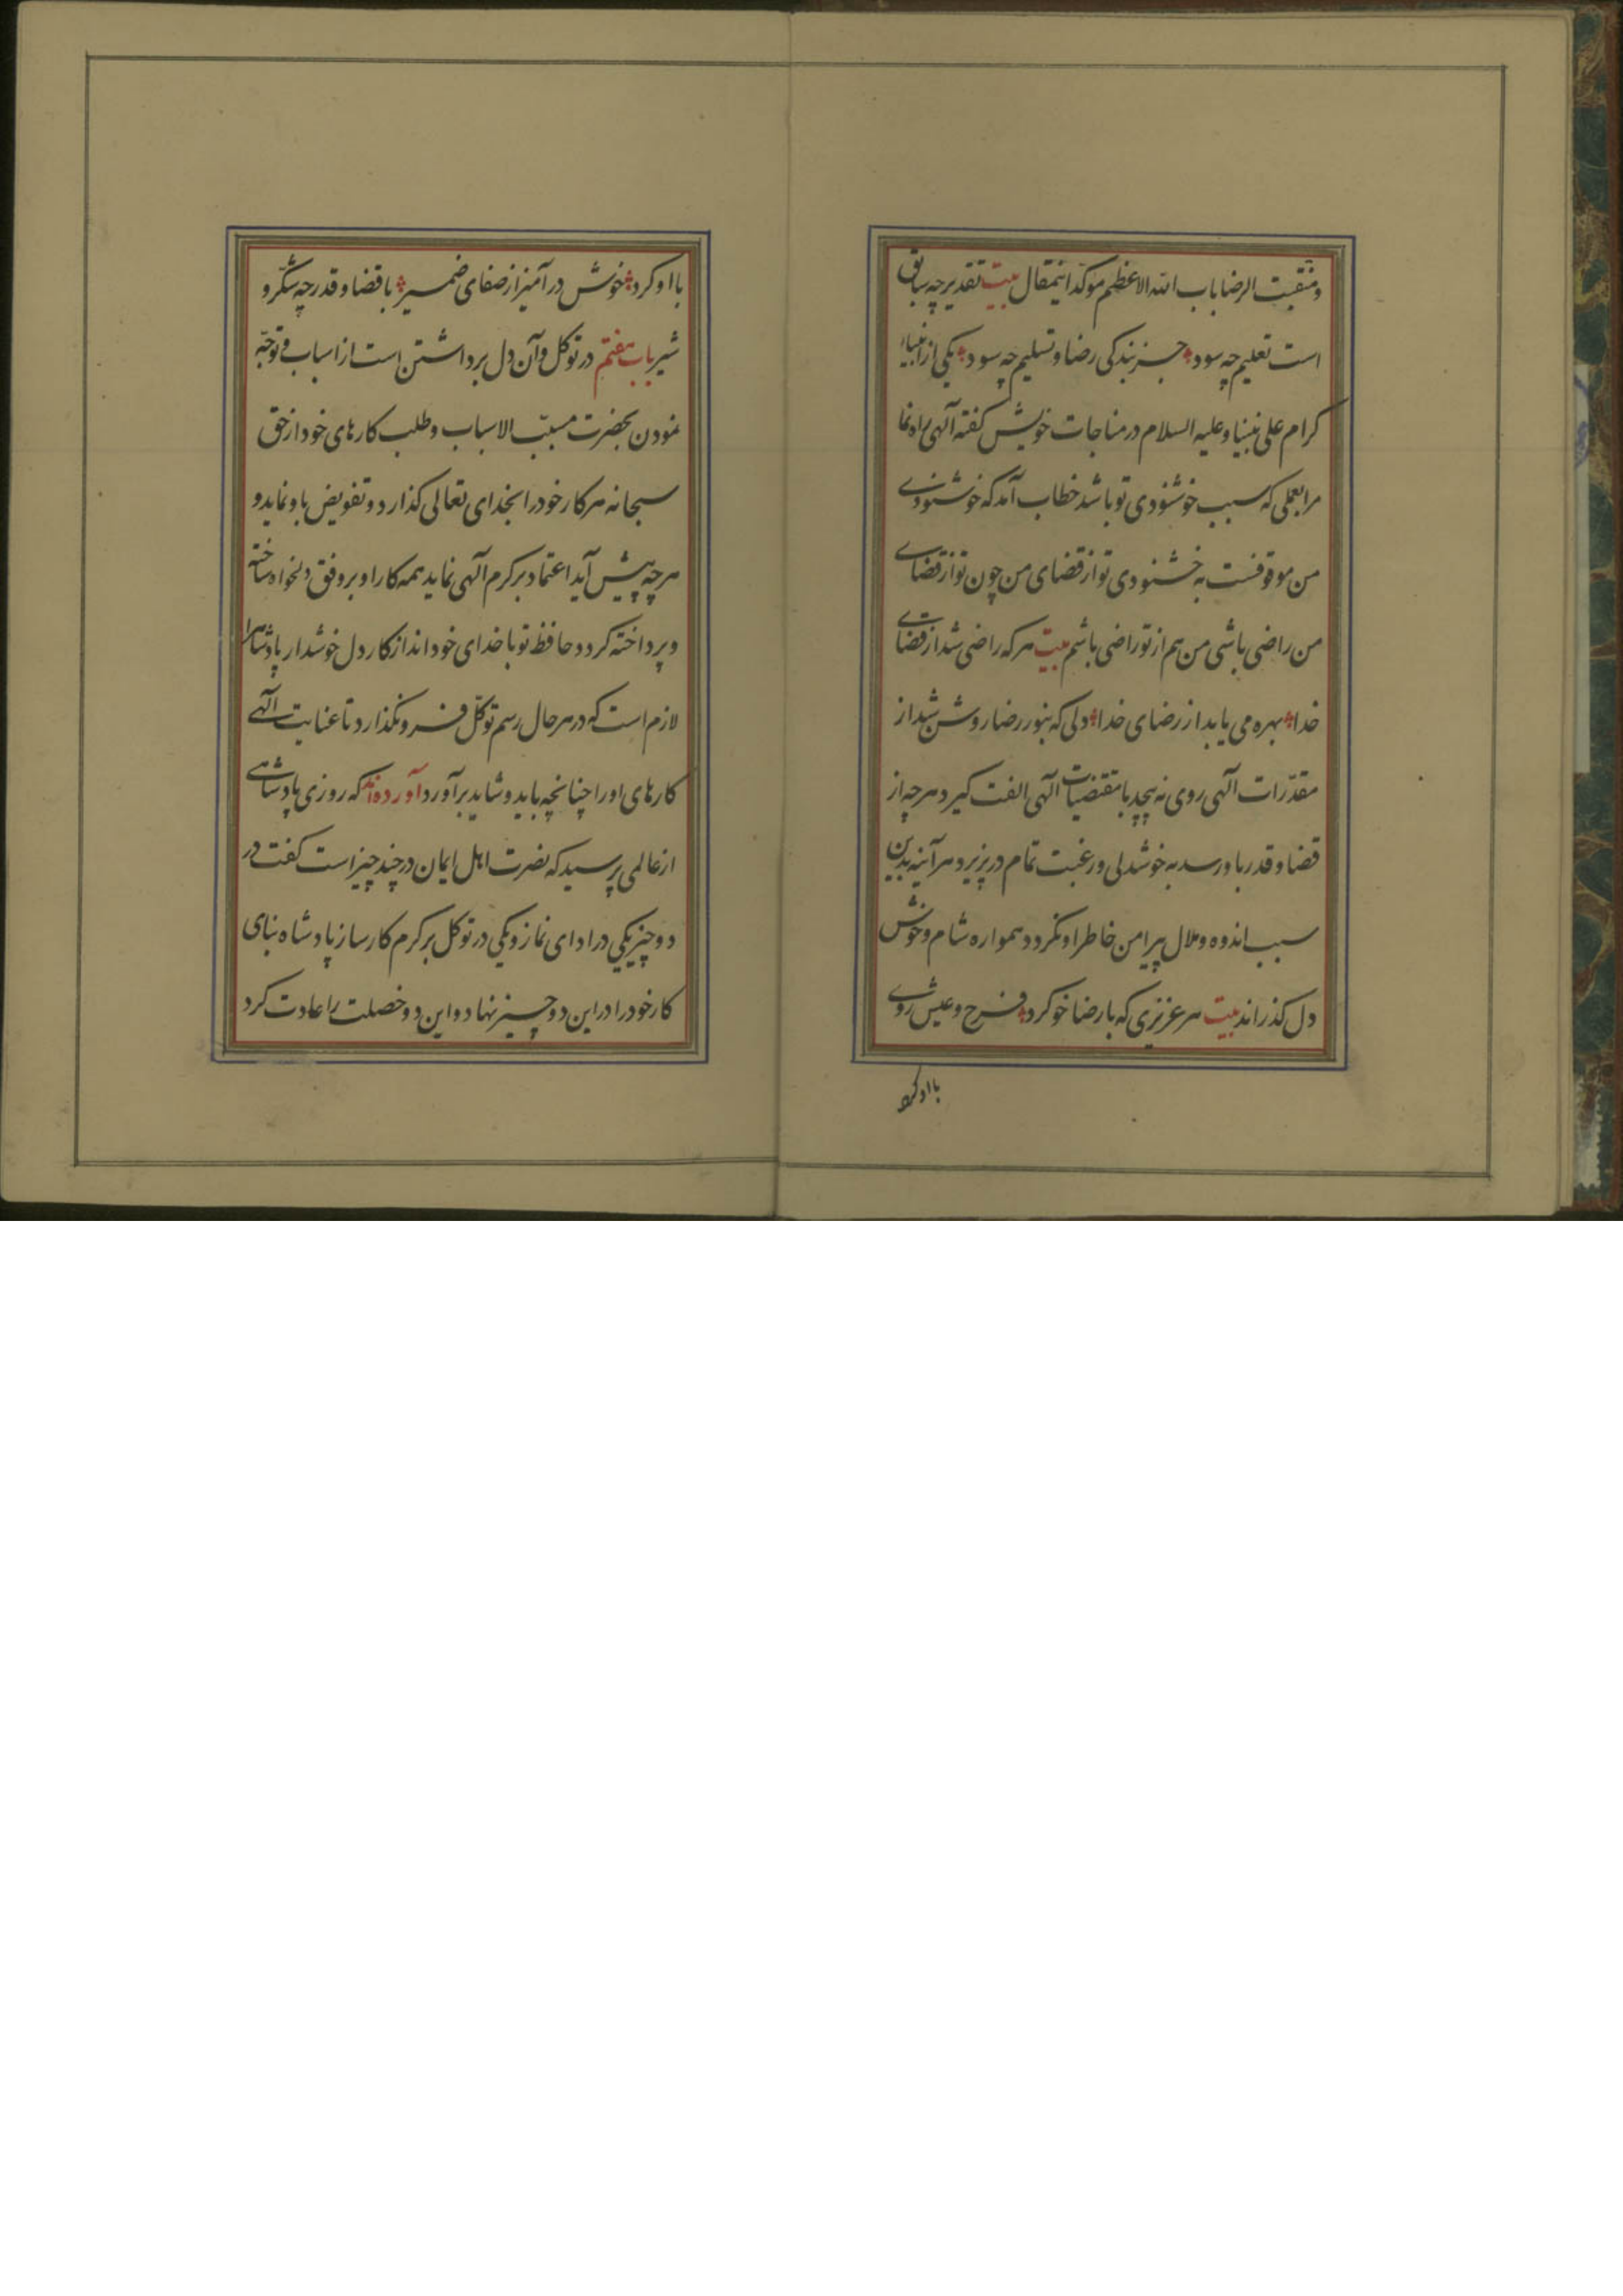 ومنقبت الرضا باب الله الاعظم موکد اینمقال بیت تقدیر چه سابق
است تعلیم چه سود جز بندکی رضا و تسلیم چه سود یکی از انبیاء
کرام علی نبینا وعلیه السلام در مناجات خویش کفته آلهی راه نما
مرا بعملی که سبب خوشنودی تو باشد خطاب آمد که خوشنودی
من موقوفست به خشنودی تو از قضای من چون تو از قضای
من راضی باشی من هم از تو راضی باشم بیت هر که راضی شد از قضای
خدا بهره می یابد از رضای خدا دلی که بنور رضا روشن شد از
مقدّرات آلهی روی نه پیچد با مقتضیات آلهی الفت کیرد هر چه از
قضا و قدر باو رسد به خوشدلی ورغبت تمام در پزیرد هر آینه بدین
سبب اندوه وملال پیرامن خاطر او نکردد همواره شام وخوش
دل کذراند بیت هر عزیزی که با رضا خو کرد فرح وعیش روی
باا و کرد
باا و کرد خوش در آمیز از صفای ضمیر با قضا و قدر چه شکّر و
شیر باب هفتم در توکل وآن دل برداشتن است از اسباب و توجّه
نمودن بحضرت مسبّب الاسباب وطلب کارهای خود از حق
سبحانه هر کار خود را بخدای تعالی کذارد و تفویض باو نماید و
هر چه پیش آید اعتماد بر کرم آلهی نماید همه کار او بر وفق دلخواه ساخته
و پرداخته کردد حافظ تو با خدای خود انداز کار دل خوشدار پادشاهرا
لازم است که در هر حال رسم توکّل فرو نکذارد تا عنایت آلهی
کارهای او را چنانچه باید و شاید بر آورد آورده‌اند که روزی پادشاهی
از عالمی پرسید که نصرت اهل ایمان در چند چیز است کفت در
دو چیز یکی در ادای نماز و یکی در توکل بر کرم کارساز پادشاه بنای
کار خود را در این دو چیز نهاد و این دو خصلت را عادت کرد